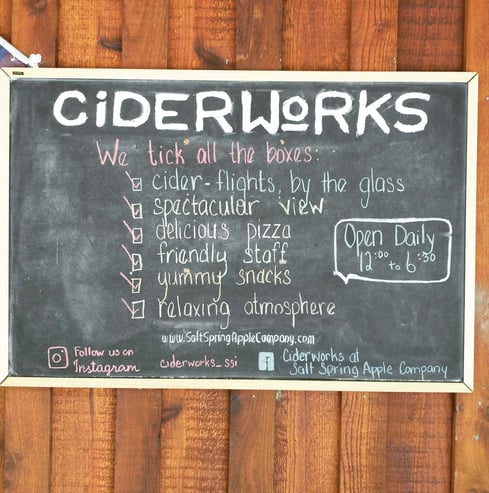 CiDERWoRKS
We tick all the boxes:
cider-flights, by the glass
spectacular view
delicious pizza
friendly staff
yummy snacks
relaxing atmosphere
Open Daily
12:00 to 6:30
www.SaltSpringAppleCompany.com
Follow us on
Instagram
ciderworks_ssi
Ciderworks at
Salt Spring Apple Company